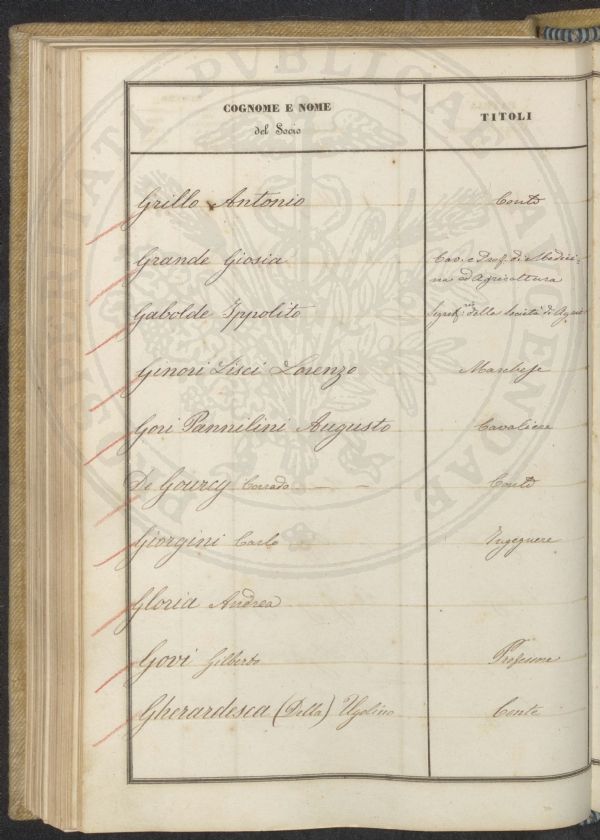 COGNOME E NOME
del Socio
TITOLI
Grillo Antonio
Conte
Grande Giosia
Cav. e Prof. di Medici-
na ed Agricoltura
Gabolde Ippolito
Segret.rio della Società di Agric.
Ginori Lisci Lorenzo
Marchese
Gori Pannilini Augusto
Cavaliere
De Gourcy Corrado
Conte
Giorgini Carlo
Ingegnere
Gloria Andrea
Govi Gilberto
Professore
Gherardesca (Della) Ugolino
Conte
PROSPERITATI PVBLICAE AVGENDAE